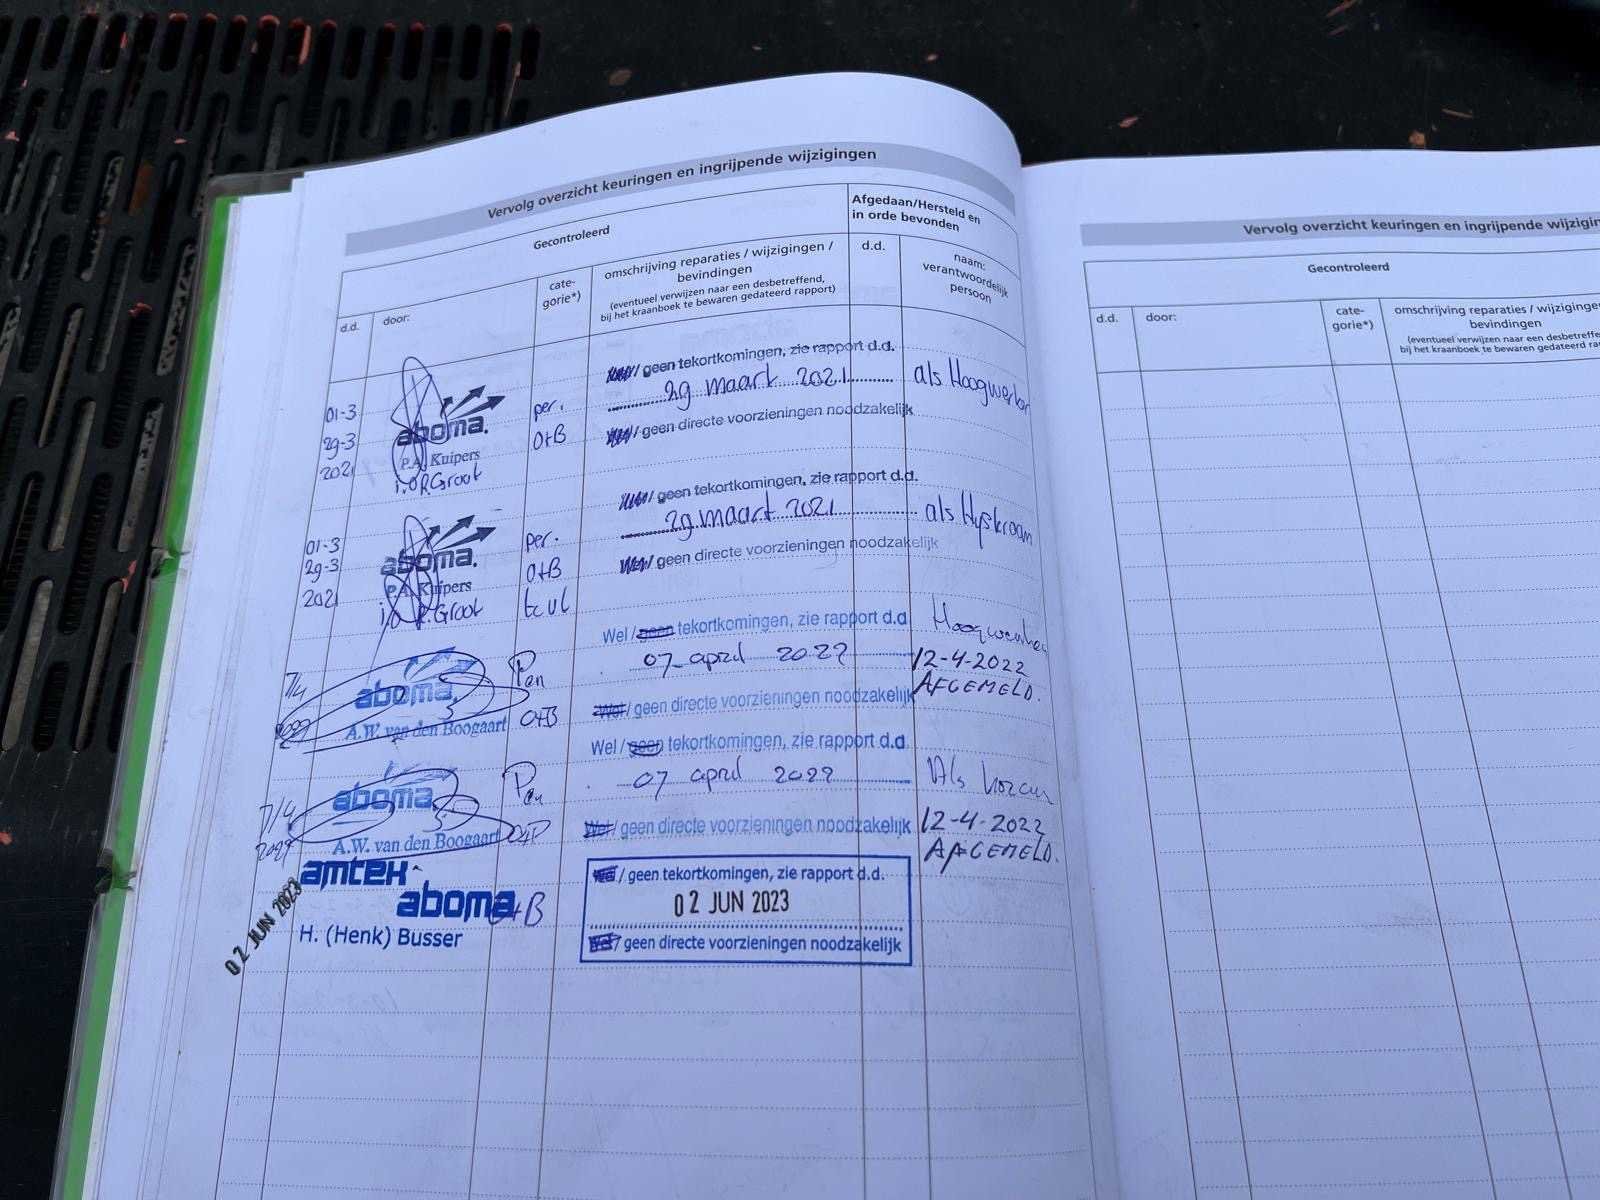 Vervolg overzicht keuringen en ingrijpende wijzigingen
Gecontroleerd
Afgedaan/Hersteld en
in orde bevonden
d.d.
door:
cate-
gorie*)
omschrijving reparaties / wijzigingen /
bevindingen
(eventueel verwijzen naar een desbetreffend,
bij het kraanboek te bewaren gedateerd rapport)
d.d.
naam:
verantwoordelijk
persoon
01-3
29-3
2021
aboma.
P.A. Kuipers
R.Groot
per.
O+B
/ geen tekortkomingen, zie rapport d.d.
29 maart 2021
/ geen directe voorzieningen noodzakelijk
als Hoogwerker
01-3
29-3
2021
aboma.
P.A. Kuipers
R.Groot
per.
O+B
/ geen tekortkomingen, zie rapport d.d.
29 maart 2021
Wel / geen directe voorzieningen noodzakelijk
als Hyskraan
7/4
2022
aboma.
A.W. van den Boogaart
O+B
Wel / geen tekortkomingen, zie rapport d.d.
07 april 2022
Wel / geen directe voorzieningen noodzakelijk
12-4-2022
AFGEMELD.
7/4
aboma.
A.W. van den Boogaart
Wel / geen tekortkomingen, zie rapport d.d.
07 april 2022
Wel / geen directe voorzieningen noodzakelijk
Als
12-4-2022
AFGEMELD.
02 JUN 2023
amtek
aboma
H. (Henk) Busser
O+B
/ geen tekortkomingen, zie rapport d.d.
02 JUN 2023
Wel / geen directe voorzieningen noodzakelijk
Vervolg overzicht keuringen en ingrijpende
Gecontroleerd
d.d.
door:
cate-
gorie*)
omschrijving reparaties / wijzigingen
bevindingen
(eventueel verwijzen naar een
bij het kraanboek te bewaren gedateerd